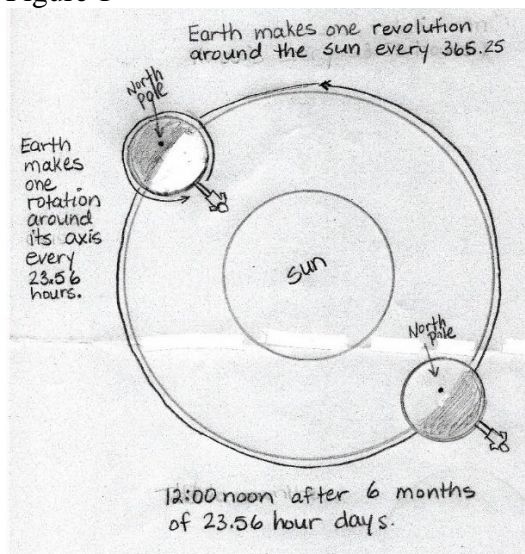 Figure 1
Earth makes one revolution
around the sun every 365.25
North
pole
Earth
makes
one
rotation
around
its axis
every
23.56
hours.
sun
North
pole
12:00 noon after 6 months
of 23.56 hour days.